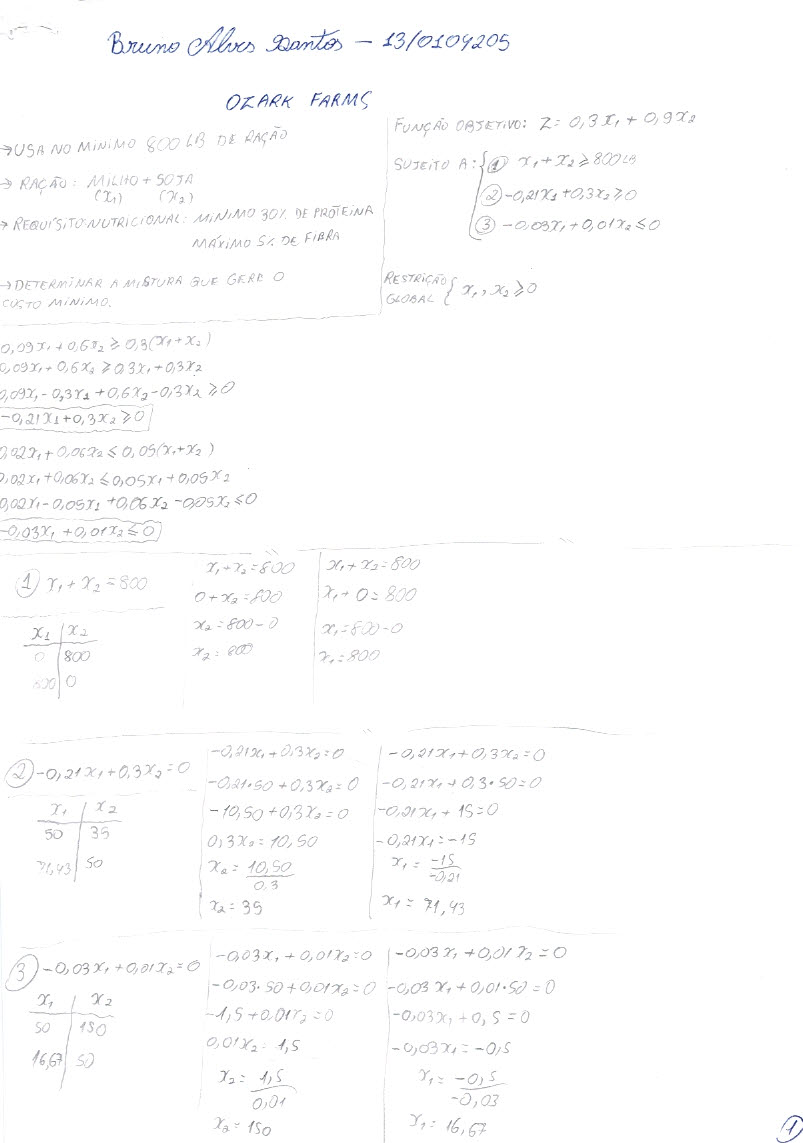 Bruno Alves Santos - 13/0104205
OZARK FARMS
→ USA NO MÍNIMO 800 LB DE RAÇÃO
→ RAÇÃO: MILHO + SOJA
(x1) (x2)
→ REQUISITO NUTRICIONAL: MÍNIMO 30% DE PROTEÍNA
MÁXIMO 5% DE FIBRA
→ DETERMINAR A MISTURA QUE GERE O
CUSTO MÍNIMO.
FUNÇÃO OBJETIVO: Z = 0,3x1 + 0,9x2
SUJEITO A: { ① x1 + x2 ≥ 800 LB
② -0,21x1 + 0,3x2 ≥ 0
③ -0,03x1 + 0,01x2 ≤ 0
RESTRIÇÃO
GLOBAL { x1, x2 ≥ 0
0,09x1 + 0,6x2 ≥ 0,3(x1+x2)
0,09x1 + 0,6x2 ≥ 0,3x1 + 0,3x2
0,09x1 - 0,3x1 + 0,6x2 - 0,3x2 ≥ 0
-0,21x1 + 0,3x2 ≥ 0
0,02x1 + 0,06x2 ≤ 0,05(x1+x2)
0,02x1 + 0,06x2 ≤ 0,05x1 + 0,05x2
0,02x1 - 0,05x1 + 0,06x2 - 0,05x2 ≤ 0
-0,03x1 + 0,01x2 ≤ 0
① x1 + x2 = 800
x1 | x2
0 | 800
800 | 0
x1 + x2 = 800
0 + x2 = 800
x2 = 800 - 0
x2 = 800
x1 + x2 = 800
x1 + 0 = 800
x1 = 800 - 0
x1 = 800
② -0,21x1 + 0,3x2 = 0
x1 | x2
50 | 35
71,43 | 50
-0,21x1 + 0,3x2 = 0
-0,21·50 + 0,3x2 = 0
-10,50 + 0,3x2 = 0
0,3x2 = 10,50
x2 = 10,50
0,3
x2 = 35
-0,21x1 + 0,3x2 = 0
-0,21x1 + 0,3·50 = 0
-0,21x1 + 15 = 0
-0,21x1 = -15
x1 = -15
-0,21
x1 = 71,43
③ -0,03x1 + 0,01x2 = 0
x1 | x2
50 | 150
16,67 | 50
-0,03x1 + 0,01x2 = 0
-0,03·50 + 0,01x2 = 0
-1,5 + 0,01x2 = 0
0,01x2 = 1,5
x2 = 1,5
0,01
x2 = 150
-0,03x1 + 0,01x2 = 0
-0,03x1 + 0,01·50 = 0
-0,03x1 + 0,5 = 0
-0,03x1 = -0,5
x1 = -0,5
-0,03
x1 = 16,67
①